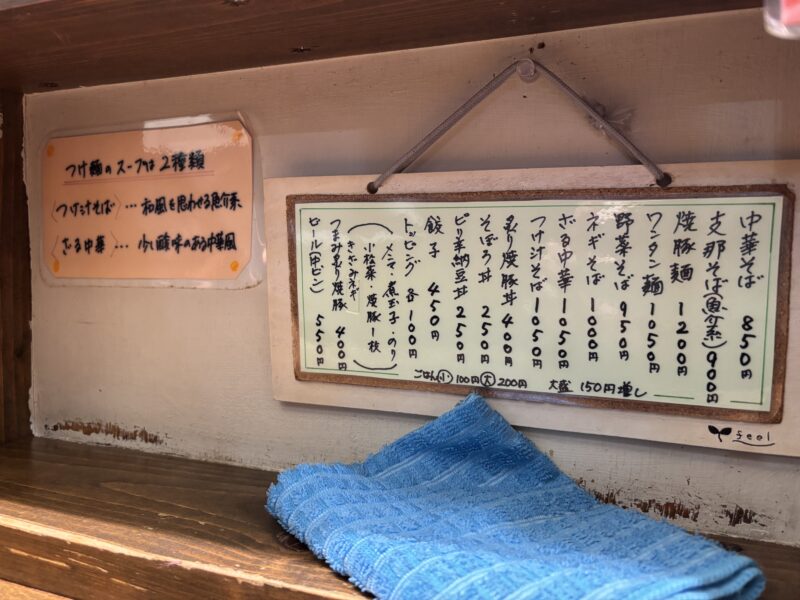 つけ麺のスープは2種類
〈つけ汁そば〉…和風を思わせる魚介系
〈ざる中華〉…少し酸味のある中華風
中華そば 850円
支那そば(魚介系) 900円
焼豚麺 1200円
ワンタン麺 1050円
野菜そば 950円
ネギそば 1000円
ざる中華 1050円
つけ汁そば 1050円
炙り焼豚丼 400円
そぼろ丼 250円
ピリ辛納豆丼 250円
餃子 450円
トッピング各100円
(メンマ・煮玉子・のり
小松菜・焼豚1枚
きざみネギ)
つまみ炙り焼豚 400円
ビール(中ビン) 550円
ごはん(小)100円(大)200円 大盛150円増し